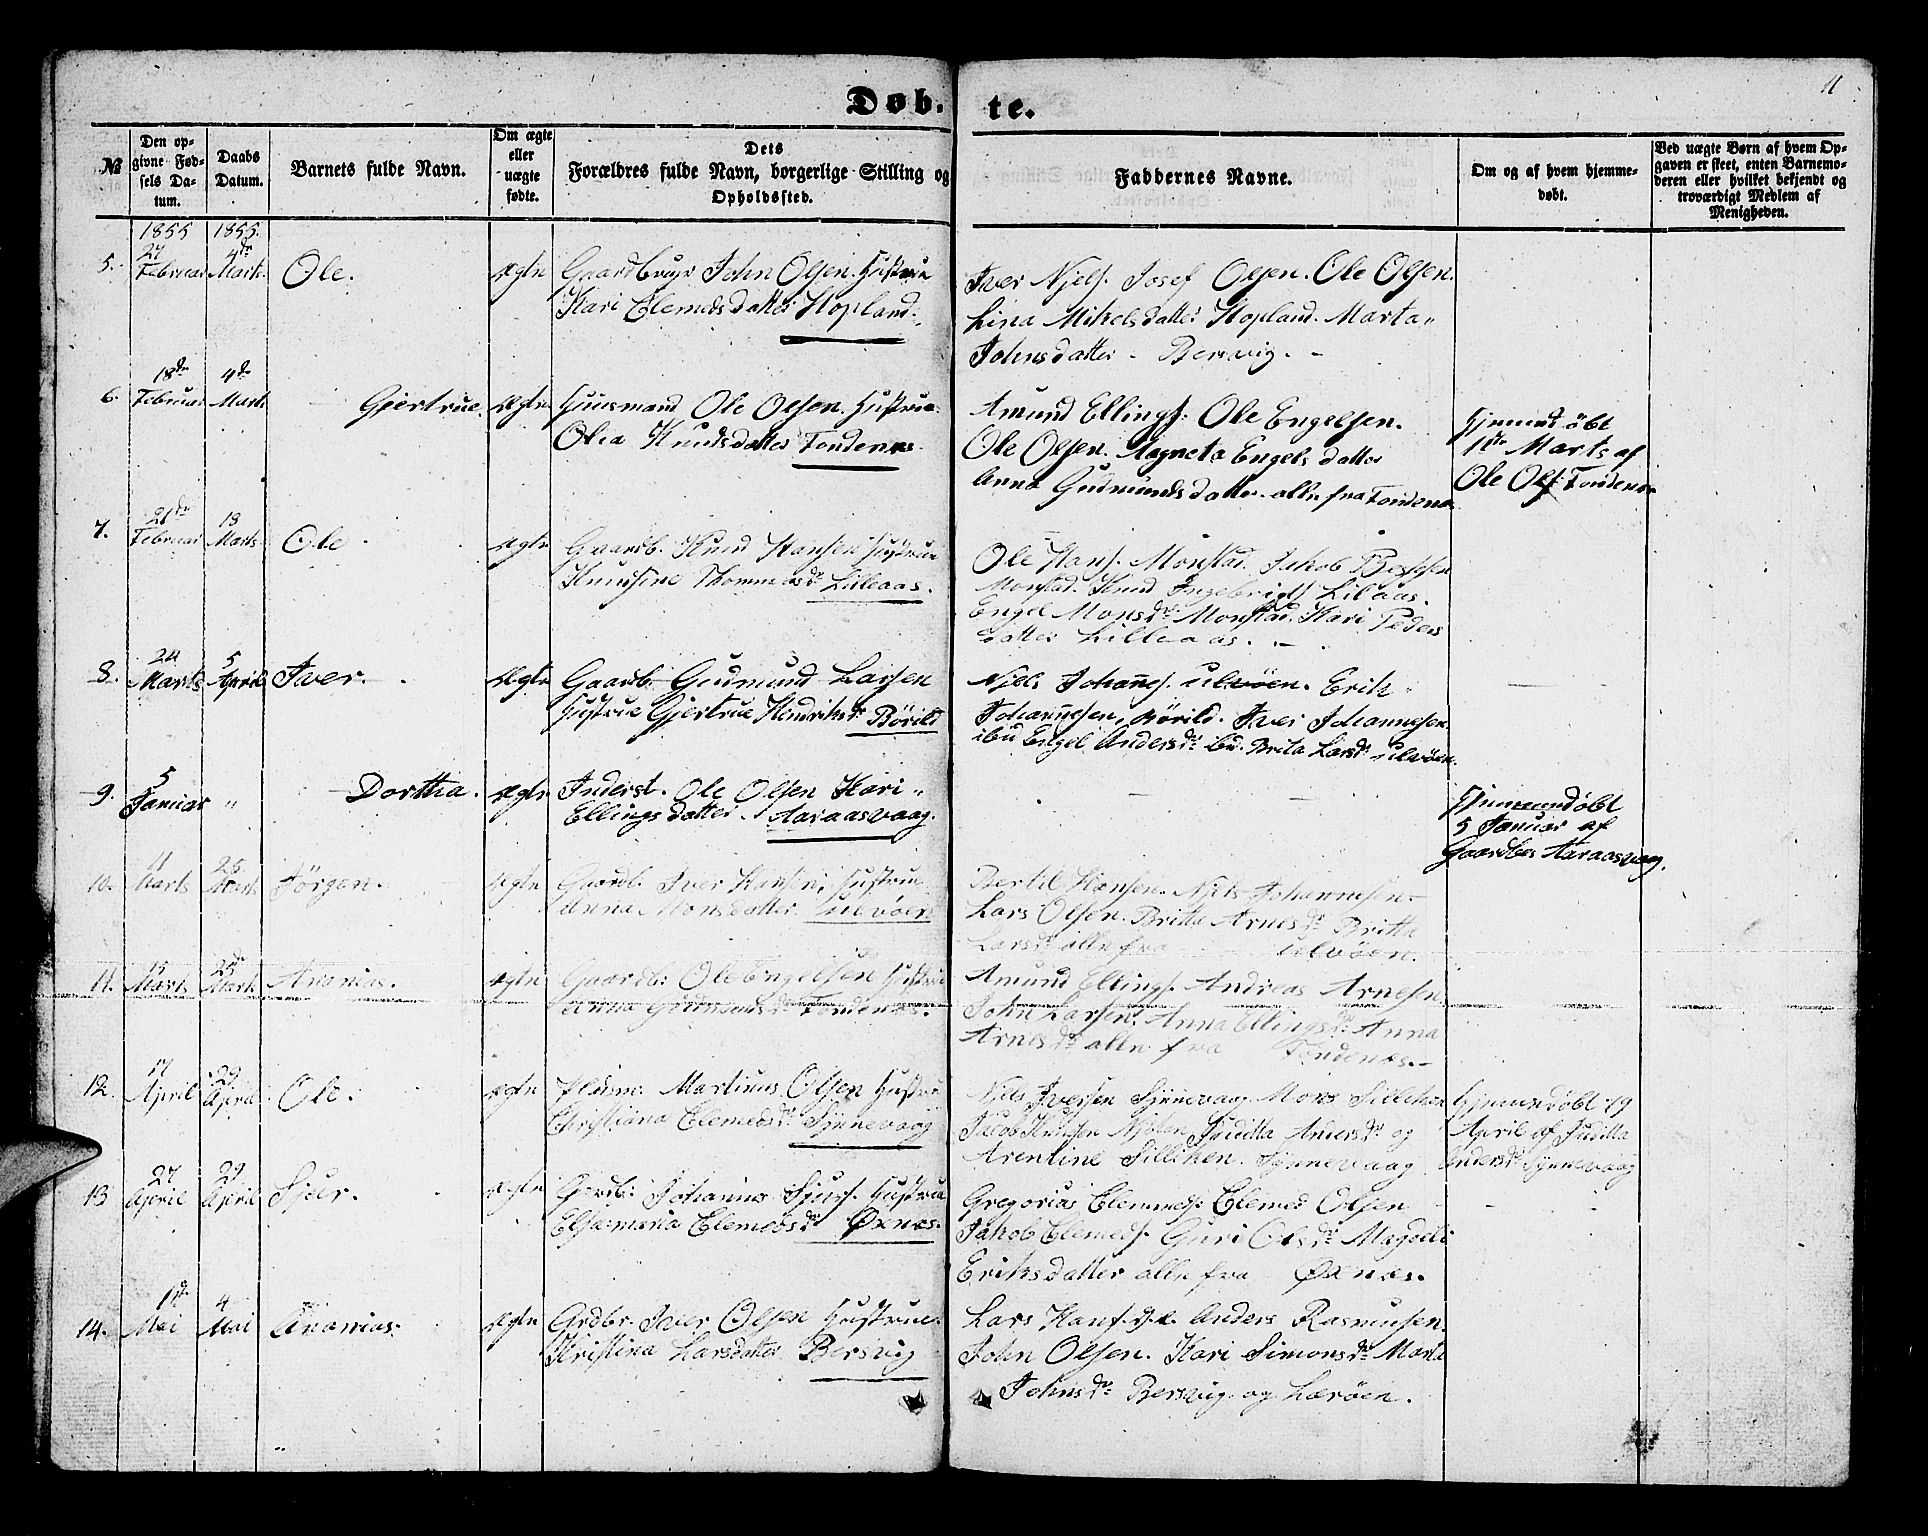 11
Døb. te.
№
Den opgivne Fødsels Datum.
Daabs Datum.
Barnets fulde Navn.
Om ægte eller uægte fødte.
Dets Forældres fulde Navn, borgerlige Stilling og Opholdssted.
Faddernes Navne.
Om og af hvem hjemmedøbt.
Ved uægte Børn af hvem Opgaven er skeet, enten Barnemoderen eller hvilket bekjendt og troværdigt Medlem af Menigheden.
1855 1855.
5. 27 Februar 4de Marts Ole. Ægte Gaardbruger John Olsen. Hustrue
Kari Clemedsdatter Hopland.
Iver Njels. Josef Olsen. Ole Olsen.
Lina Mikelsdatter Hopland. Marta
Johnsdatter - Bersvig. -
6. 18de Februar 4de Marts Gjertrue. Ægte Huusmand Ole Olsen. Hustrue
Olia Knudsdatter Tondenes
Amund Ellings. Ole Engelsen.
Ole Olsen. Agneta Engelsdatter
Anna Gudmundsdatter alle fra Tondenes
Hjemmedøbt
1ste Marts af
Ole Ols. Tondenes
7. 21de Februar 18 Marts Ole Ægte Gaardb. Knud Hansen Hustrue
Knudsine Thommasdr Lilleaas.
Ole Hans. Monstad. Jakob
Monstad. Knud Ingebrigts Lilaas.
Engel Monsdr. Monstad. Kari Peders
datter Lilleaas. -
8. 24 Marts 5 April Iver. Ægte Gaardb. Gudmund Larsen
Hustrue Gjertrue Hendriksdr Börild
Njels Johannes. Ulvöen. Erik
Johannesen, Börild. Iver Johannesen
ibd Engel Andersdr ibd. Brita Larsdr Ulvöen.
9. 5 Januar " Dorthea. Ægte Inderst. Ole Olsen Kari
Ellingsdatter. Aaraasvaag.
Hjemmedøbt
5 Januar af
Gaardbr Aaraasvaag.
10. 11 Marts 25 Marts Jörgen. Ægte Gaardb. Iver Hansen, Hustrue
Anna Monsdatter Ulvöen
Bertil Hansen. Njels Johannesen
Lars Olsen. Britta Arnesdr Britta
Larsdr alle fra Ulvöen.
11. 15 Marts 25de Marts Ananias. Ægte Gaardb: Ole Engelsen Hustrue
Anna Gudmundsdr Tondenæs.
Amund Ellings. Andreas Arnesen
John Larsen. Anna Ellingsdr. Anna
Arnesdr alle fra Tondenæs.
12. 17 April 29 April Ole. Ægte Martinus Olsen Hustrue
Christiana Clemedsdr Synnevaag
Njels Iversen Synnevaag Mons Silleken
Jacob Knudsen Juditta Andersdr og
Arentine Silliken. Synnevaag
Hjemmedøbt 19
April af Juditta
Andersdr Synnevaag
13 27 April 29 April Sjur. Ægte Gardb. Johannes Sjurs. Hustrue
Elsamaria Clemedsdr Øxnæs.
Gregorius Clemmeds. Clemed Olsen
Jakob Clemeds. Guri Olsdr Magdeli
Eriksdatter alle fra Øxnæs.
14. 1de Mai 4 Mai Ananias. Ægte Grdbr. Iver Olsen Hustrue
Kristina Larsdatter Bersvig
Lars Hans. Anders Rasmusen.
John Olsen. Kari Simonsdr Marta
Johnsdr Bersvig og Læröen.